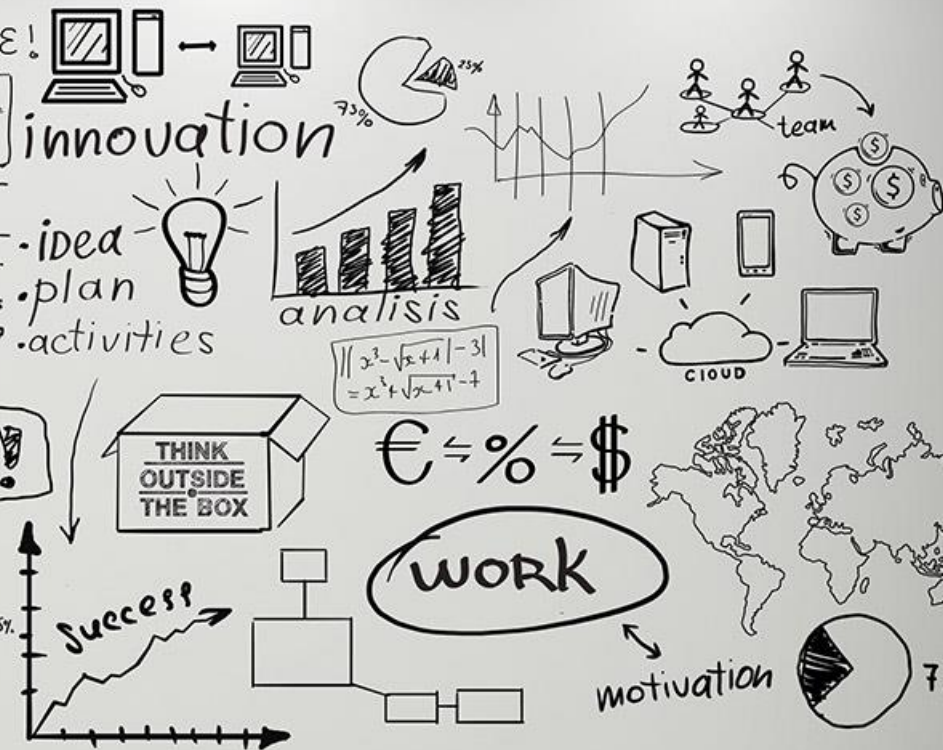 E!
25%
73%
innovation
team
$
$ $
$
· idea
· plan
· activities
analisis
|| x³ - √x+1 | - 3|
= x³ + √x+1 - 7
CLOUD
THINK
OUTSIDE
THE BOX
€ ⇋ % ⇋ $
WORK
success
5%
motivation
7